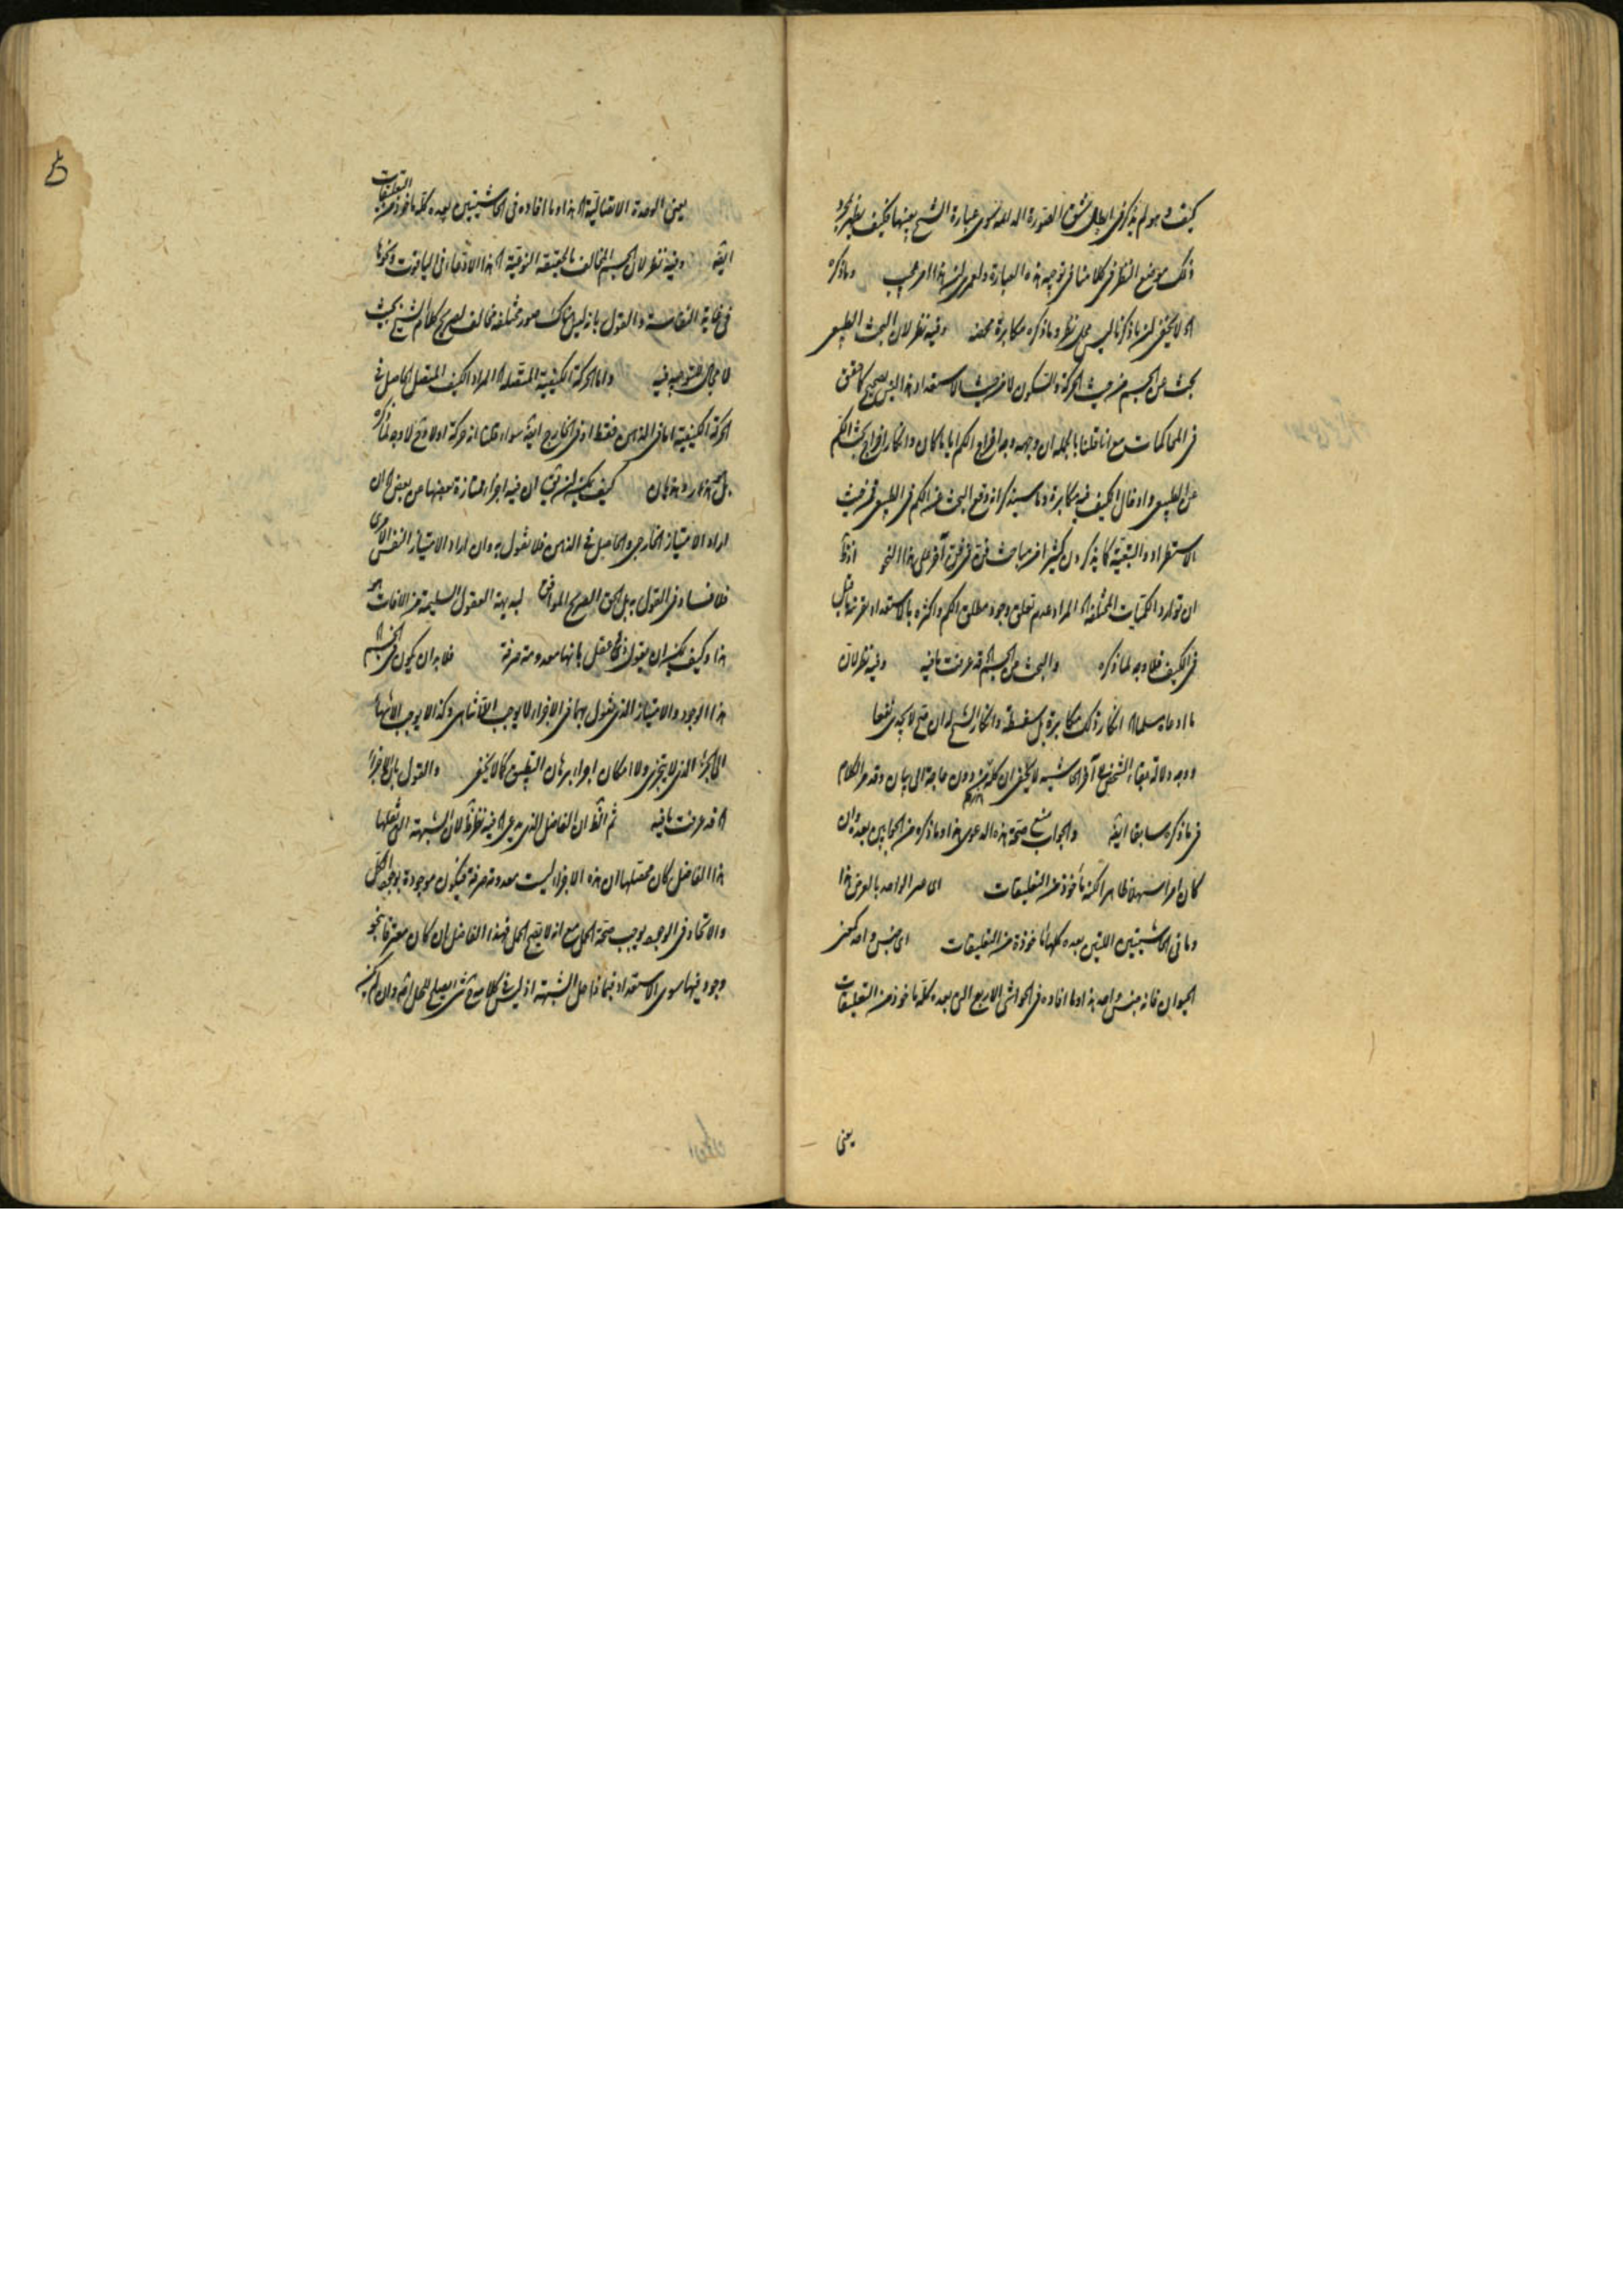 كيف وهو لم يذكر في ابطال شق الصورة الـ سوى عبارة الشيخ بعينها فكيف يظهر
ذلك موضع النظر في كلامنا في توجيه هذه العبارة ولعمري ان هذا امر عجيب وما ذكره
لا يخفى ان ما ذكرنا ليس محل نظر وما ذكره مكابرة محضه وفيه نظر لان البحث الطبيعي
بحث عن الجسم من حيث الحركة والسكون لا من حيث الاستعداد هذا ليس بصحيح كما حقق
في المحاكمات مع انا قلنا بالجملة ان وجهه وجه اخراج الكم ايا ما كان وانكار اخراج بحث الكم
عن الطبيعي وادخال الكيف فيه مكابرة وما سيذكر انه وقع البحث عن الكم في الطبيعي فمن حيث
الاستطراد والتبعية كما يذكر كثير من مباحث فن في فن آخر على هذا النحو
ان توارد الكميات المختلفة المراد عدم تعلق وجود مطلق الكم واكثره بالاستعداد
في الكيف فلا وجه لما ذكره والبحث عن الجسم قد عرفت ما فيه وفيه نظر لان
ما ادعاه سلما انكار ذلك مكابرة بل سفسطة وانكار الشيخ له ان صح لا يجدي نفعا
ووجه دلالة بقاء الشخص آخر الحاشية لا يخفى ان كله من دون حاجة الى بيان وقد مر الكلام
فيما ذكره سابقا ايضا والجواب منع صحة هذه الدعوى هذا وما ذكره من الجانبين بعده وان
كان امرا سهلا ظاهرا لكنه مأخوذ من التعليقات الواحد بالعرض هذا
وما في الحاشيتين اللتين بعده كلها مأخوذة من التعليقات اى جنس واحد كمعنى
الحيوان فانه جنس واحد هذا وما افاده في الحواشي الاربع التي بعده كله مأخوذ من التعليقات
يعني
يعني الوحدة الاتصالية هذا وما افاده في الحاشيتين بعده كله مأخوذ من التعليقات
ايضا وفيه نظر لان الجسم المخالف بالحقيقة النوعية هذا الادعاء في الياقوت ونحوها
في غاية النفاسة والقول بانه ليس هناك صور مختلفة مخالف لصريح كلام الشيخ بحيث
لا مجال للتوجيه فيه واما الحركة الكيفية المتصلة المراد الكيف المتصل الحاصل في
الحركة الكيفية اما في الذهن فقط او في الخارج ايضا سواء قلنا انه حركة اولا وح لا وجه لما ذكره
بل هذا وهذيان كيف يمكنه ان يقال ان فيه اجزاء ممتازة بعضها من بعض ان
اراد الامتياز الخارجي والحاصل في الذهن فلا نقول به وان اراد الامتياز النفس الامري
فلا فساد في القول به بل الحق الصريح الموافق لبديهة العقول السليمة من الافات هو
هذا وكيف يمكنه ان يقول عاقل بانها معدومة صرفة فلا بد ان يكون في الجسم
هذا الوجود والامتياز الذي نقول بهما في الاجزاء لا يوجب اللاتناهي وكذا لا يوجب الانتهاء
الى الجزء الذي لا يتجزى ولا امكان اجراء برهان التطبيق كما لا يخفى والقول بان الاجزاء
قد عرفت ما فيه ثم ان الفاضل الذي فيه نظر لان الشبهة التي نقلها
هذا الفاضل كان محصلها ان هذه الاجزاء ليست معدومة صرفة فيكون موجودة بوجود الكل
والاتحاد في الوجود يوجب صحة الحمل مع انه لا يصح الحمل فهذا الفاضل ان كان معترفا بنحو
وجود فيها سوى الاستعداد فبماذا حل الشبهة اذ ليس في كلامه شيء يصلح للحل وان لم يكن